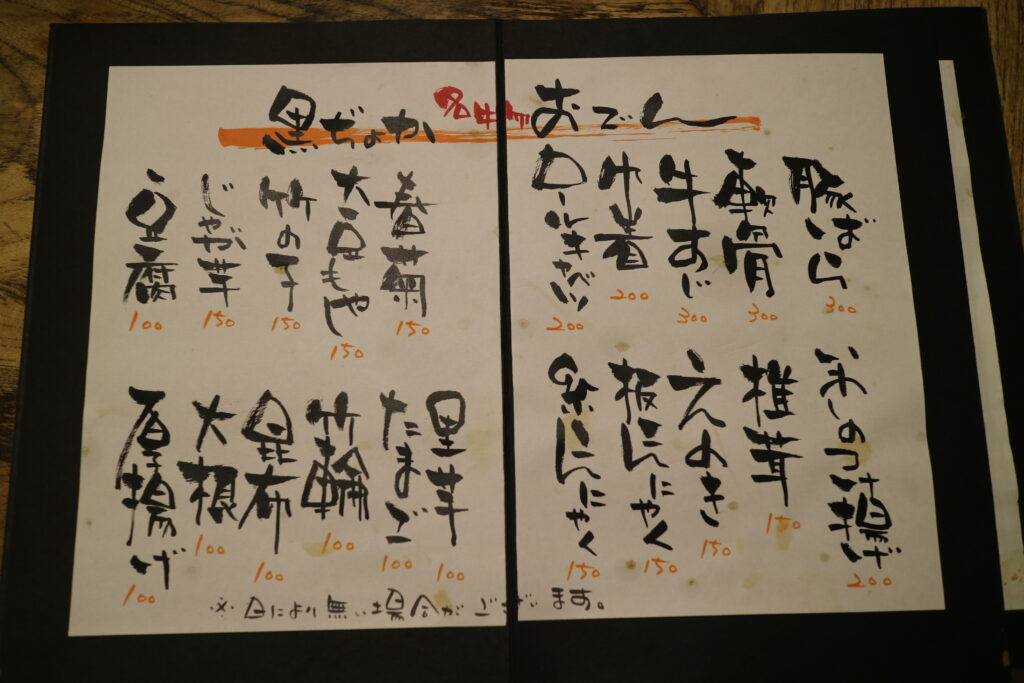 黒ぢょか 名物 おでん
豚ばら 300
軟骨 300
牛すじ 300
巾着 200
ロールキャベツ 200
春菊 150
大豆もやし 150
竹の子 150
じゃが芋 150
豆腐 100
いわしのつけ揚げ 200
椎茸 150
えのき 150
板こんにゃく 150
糸こんにゃく 150
里芋 100
たまご 100
竹輪 100
昆布 100
大根 100
厚揚げ 100
※日により無い場合がございます。